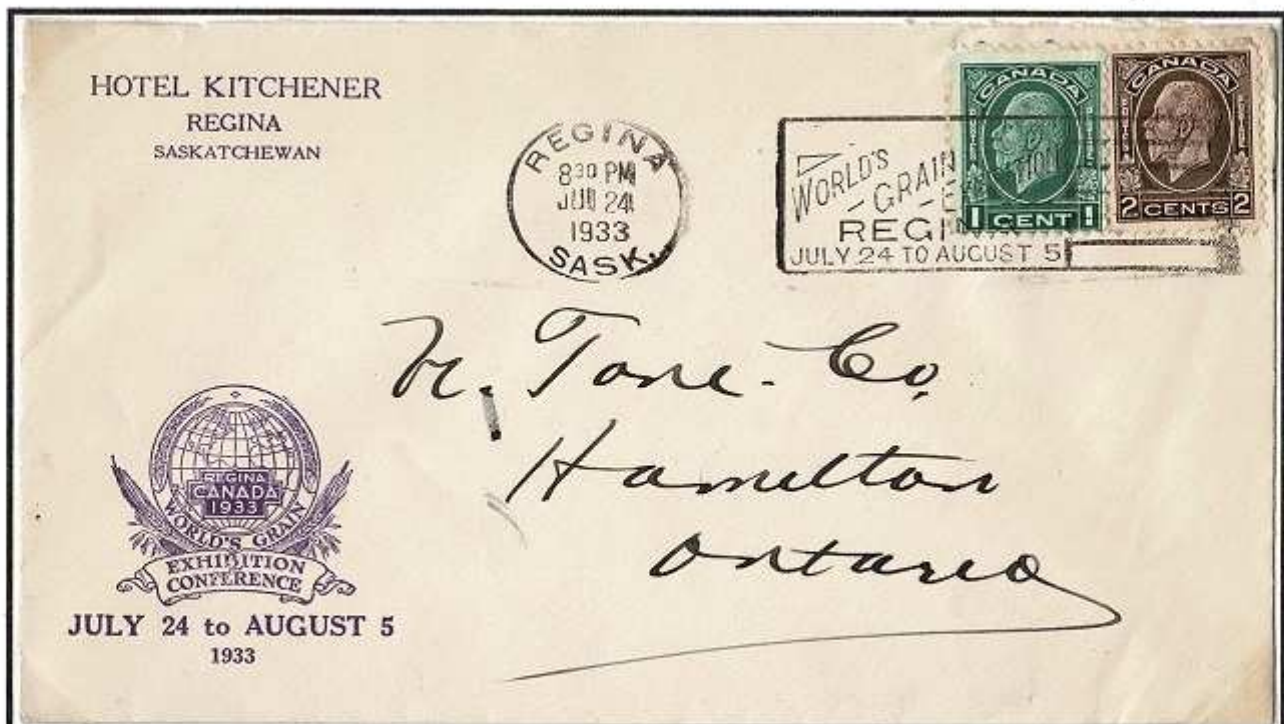 HOTEL KITCHENER
REGINA
SASKATCHEWAN
REGINA
8 30 PM
24
1933
SASK.
WORLD'S
GRAIN
REGINA
JULY 24 TO AUGUST 5
CANADA
1 CENT 1
CANADA
2 CENTS 2
Tone. Co.
Hamilton
Ontario
REGINA
CANADA
1933
WORLD'S GRAIN
EXHIBITION
CONFERENCE
JULY 24 to AUGUST 5
1933